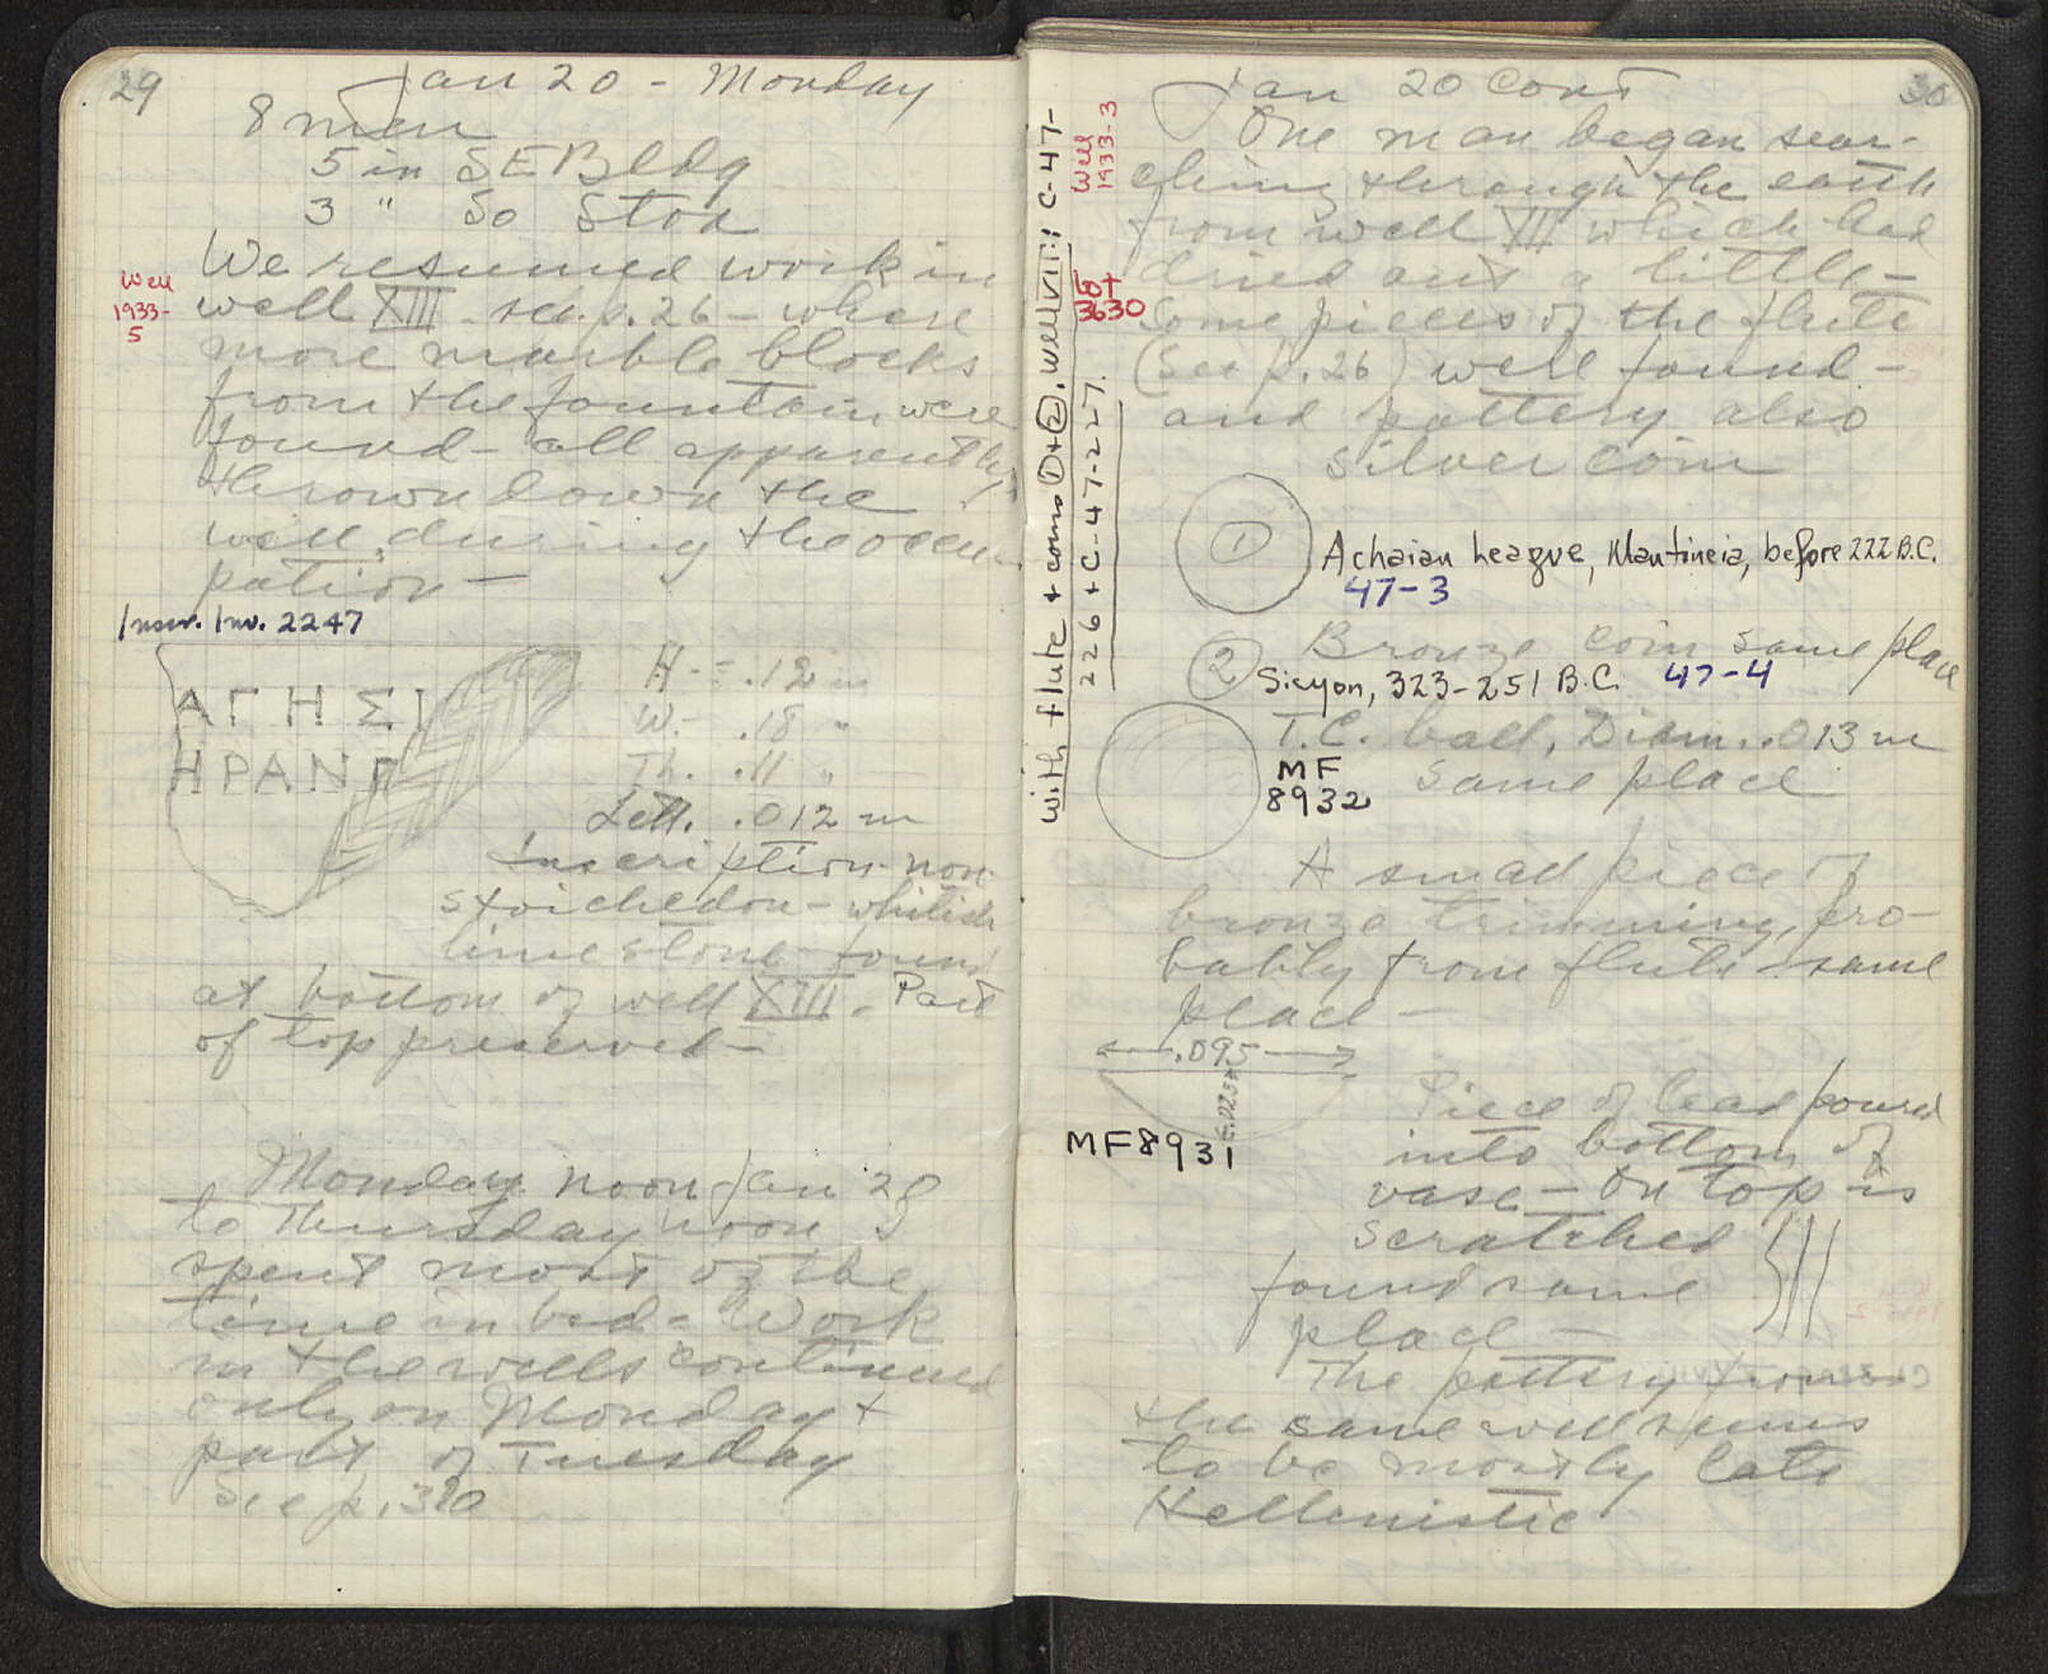 29
Jan 20 - Monday
8 men
5 in SE Bldg
3 " So Stoa
We resumed work in
Well
1933-
5
well XIII - see p. 26 - where
more marble blocks
from the fountain were
found - all apparently
thrown down the
well during the occu-
pation -
Inscr. Inv. 2247
ΑΓΗΣΙ
ΗΡΑΝΓ
H - = .12 m
W. - .18 "
Th. .11 "
Lett. .012 m
inscription non-
stoichedon - whitish
limestone found
at bottom of well XIII - Part
of top preserved -
Monday noon Jan 20
to Thursday noon
spent most of the
time in bed - Work
in the wells continued
only on Monday +
part of Tuesday
See p. 30
with flute + coins ① + ②, well VIII: C-47-
226 + C-47-227.
Well
1933-3
Lot
3630
30
Jan 20 Cont
One man began sear-
ching through the earth
from well VII which had
dried out a little -
Some pieces of the flute
(See p. 26) were found -
and pottery also
silver coin
1
Achaian League, Mantineia, before 222 B.C.
47-3
2
Bronze coin same place
Sicyon, 323-251 B.C. 47-4
T.C. ball, Diam. .013 m
MF
8932
same place
A small piece of
bronze trimming, pro-
bably from flute - same
place -
.095
MF 8931
Piece of lead poured
into bottom of
vase - On top is
scratched
found same
place -
The pottery from
the same well seems
to be mostly late
Hellenistic